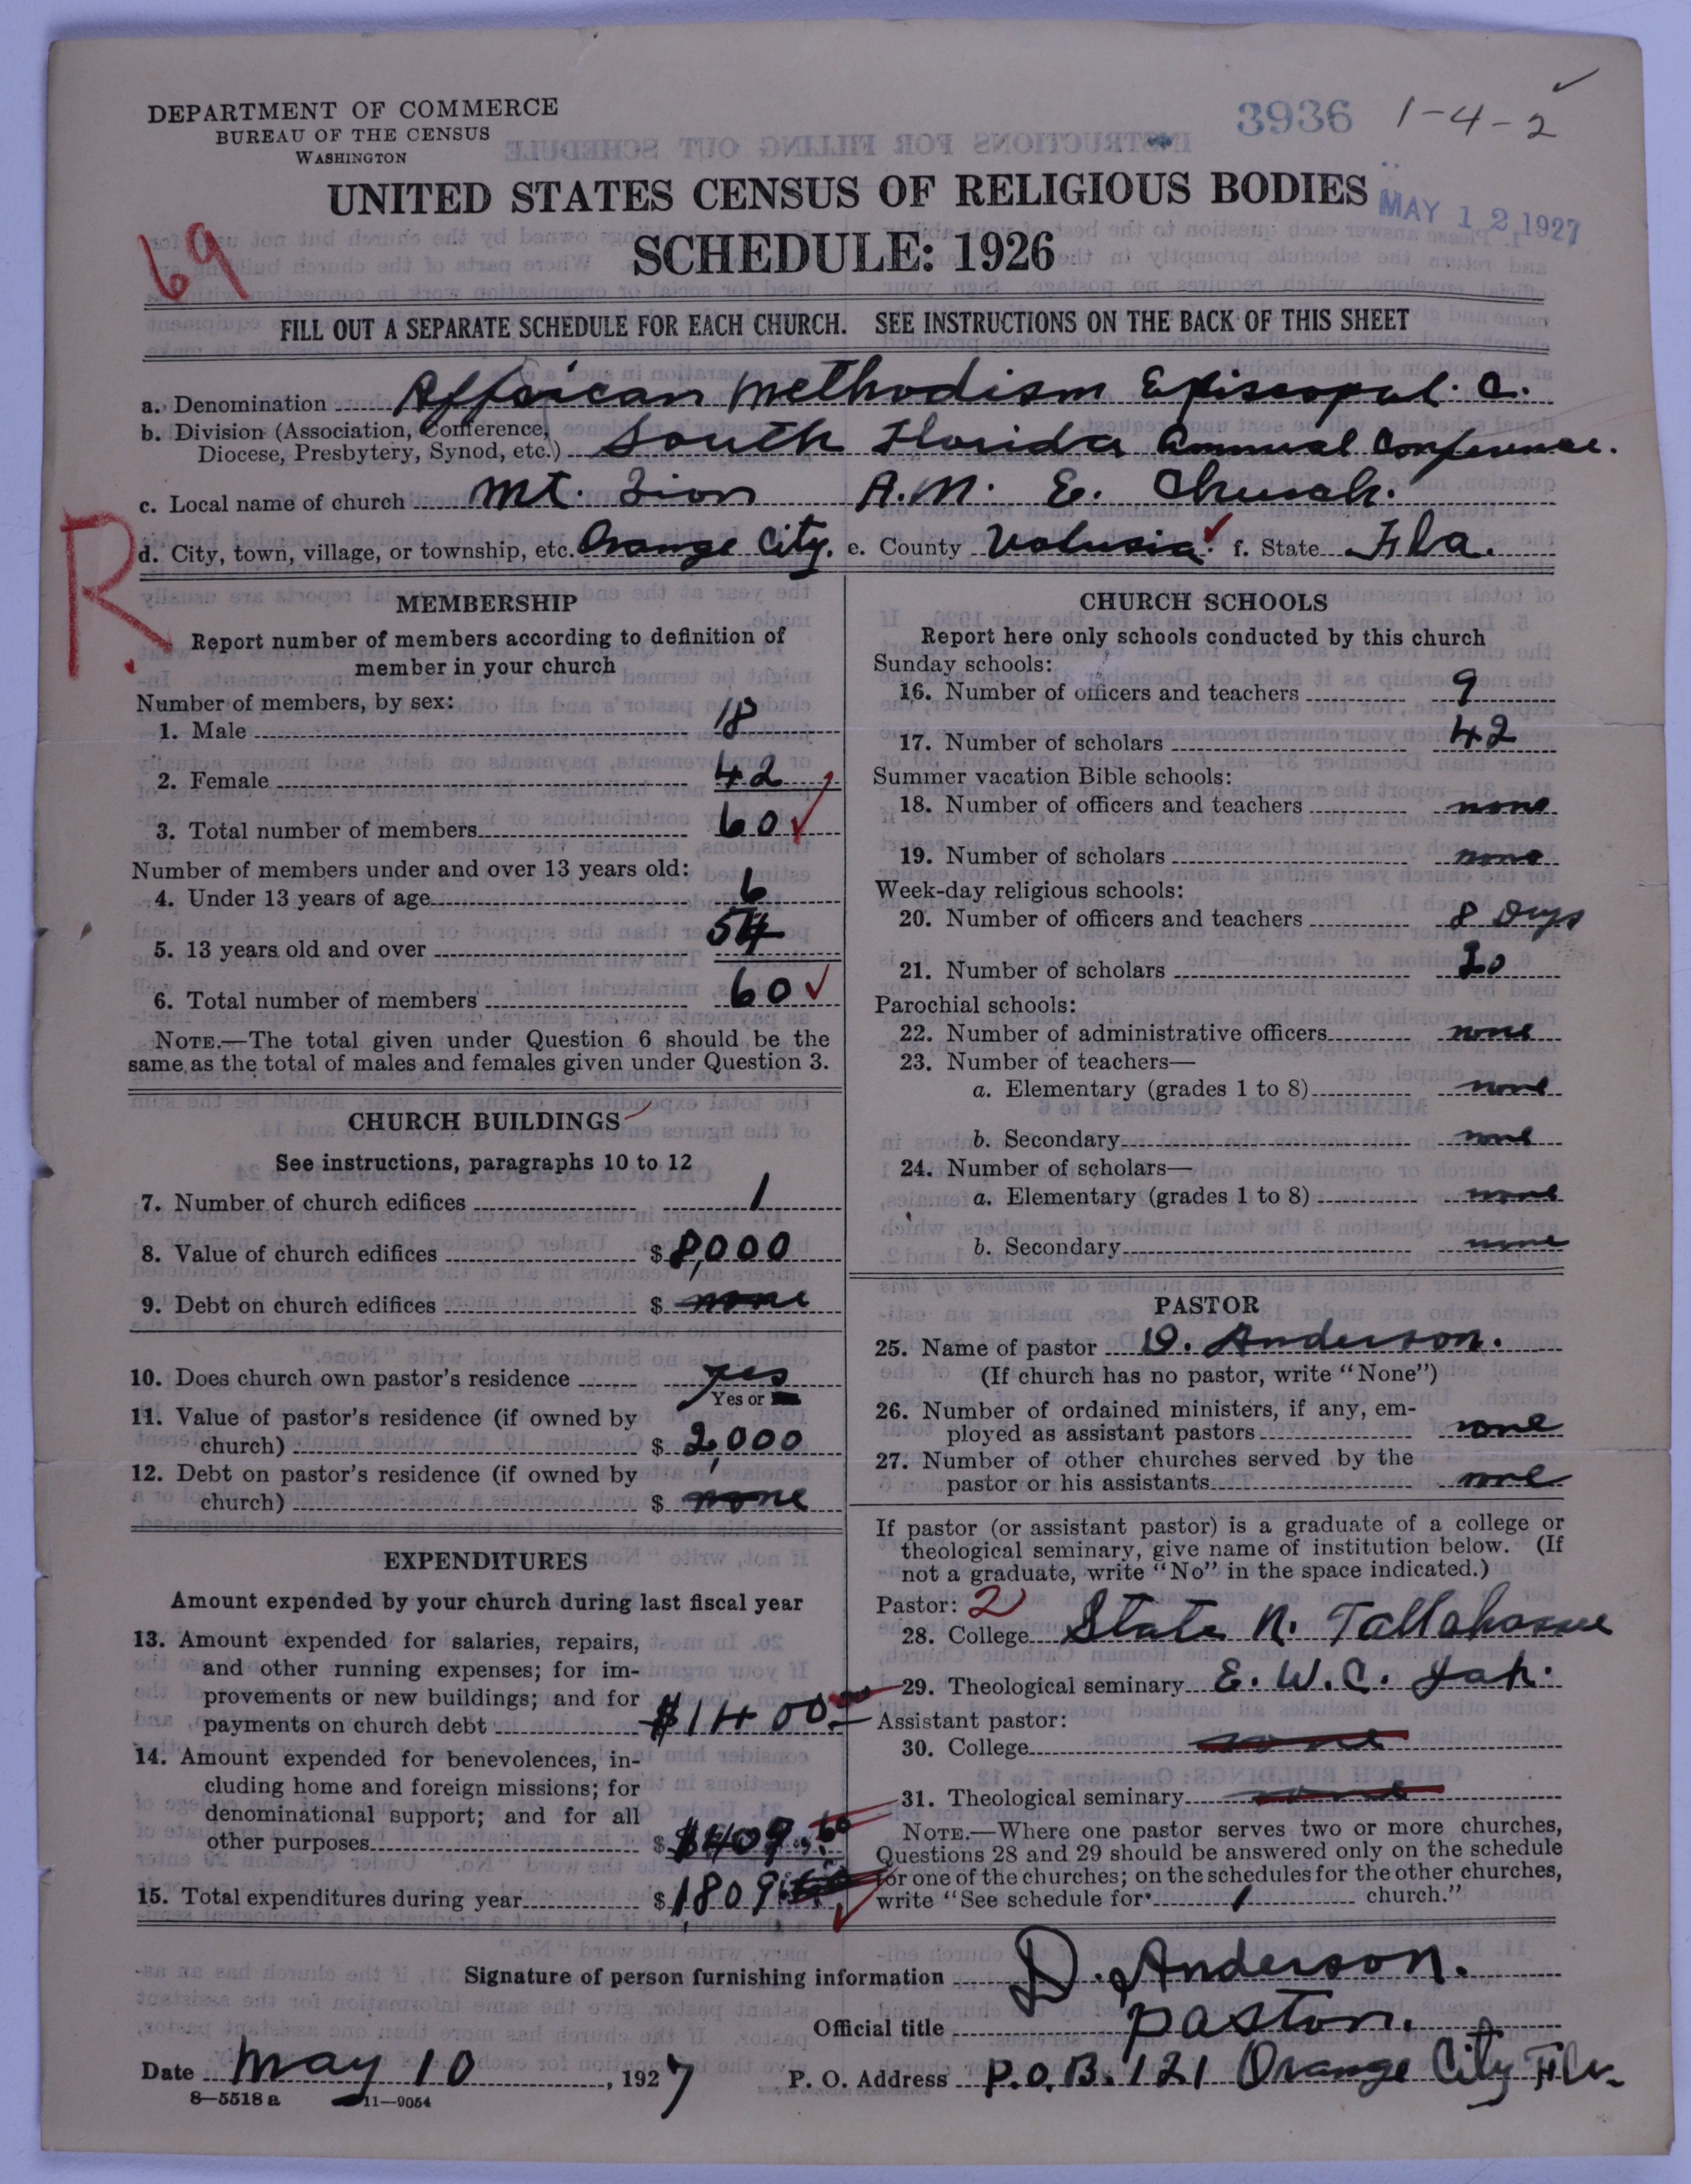 DEPARTMENT OF COMMERCE
BUREAU OF THE CENSUS
WASHINGTON
3936 1-4-2
UNITED STATES CENSUS OF RELIGIOUS BODIES
MAY 12 1927
SCHEDULE: 1926
69
FILL OUT A SEPARATE SCHEDULE FOR EACH CHURCH. SEE INSTRUCTIONS ON THE BACK OF THIS SHEET
a. Denomination Affrican Methodism Episcopal. C.
b. Division (Association, Conference,
Diocese, Presbytery, Synod, etc.) South Florida Annual Conference.
c. Local name of church Mt. Zion A.M. E. Church.
R.
d. City, town, village, or township, etc. Orange City. e. County Volusia. f. State Fla.
MEMBERSHIP
Report number of members according to definition of
member in your church
Number of members, by sex:
1. Male 18
2. Female 42
3. Total number of members 60
Number of members under and over 13 years old:
4. Under 13 years of age 6
5. 13 years old and over 54
6. Total number of members 60
NOTE.—The total given under Question 6 should be the
same as the total of males and females given under Question 3.
CHURCH BUILDINGS
See instructions, paragraphs 10 to 12
7. Number of church edifices 1
8. Value of church edifices $ 8,000
9. Debt on church edifices $ none
10. Does church own pastor's residence yes
Yes or
11. Value of pastor's residence (if owned by
church) $ 2,000
12. Debt on pastor's residence (if owned by
church) $ none
EXPENDITURES
Amount expended by your church during last fiscal year
13. Amount expended for salaries, repairs,
and other running expenses; for im-
provements or new buildings; and for
payments on church debt $1400
14. Amount expended for benevolences, in-
cluding home and foreign missions; for
denominational support; and for all
other purposes $ $409.60
15. Total expenditures during year $ 1,809
CHURCH SCHOOLS
Report here only schools conducted by this church
Sunday schools:
16. Number of officers and teachers 9
17. Number of scholars 42
Summer vacation Bible schools:
18. Number of officers and teachers none
19. Number of scholars none
Week-day religious schools:
20. Number of officers and teachers 8 Dys
21. Number of scholars 20
Parochial schools:
22. Number of administrative officers none
23. Number of teachers—
a. Elementary (grades 1 to 8) none
b. Secondary none
24. Number of scholars—
a. Elementary (grades 1 to 8) none
b. Secondary none
PASTOR
25. Name of pastor D. Anderson.
(If church has no pastor, write "None")
26. Number of ordained ministers, if any, em-
ployed as assistant pastors none
27. Number of other churches served by the
pastor or his assistants none
If pastor (or assistant pastor) is a graduate of a college or
theological seminary, give name of institution below. (If
not a graduate, write "No" in the space indicated.)
Pastor: 2
28. College State N. Tallahassee
29. Theological seminary E. W. C. Jak.
Assistant pastor:
30. College none
31. Theological seminary none
NOTE.—Where one pastor serves two or more churches,
Questions 28 and 29 should be answered only on the schedule
for one of the churches; on the schedules for the other churches,
write "See schedule for 1 church."
Signature of person furnishing information D. Anderson.
Official title pastor.
Date May 10, 1927 P. O. Address P.O.B. 121 Orange City Fla.
8—5518 a 11—9054